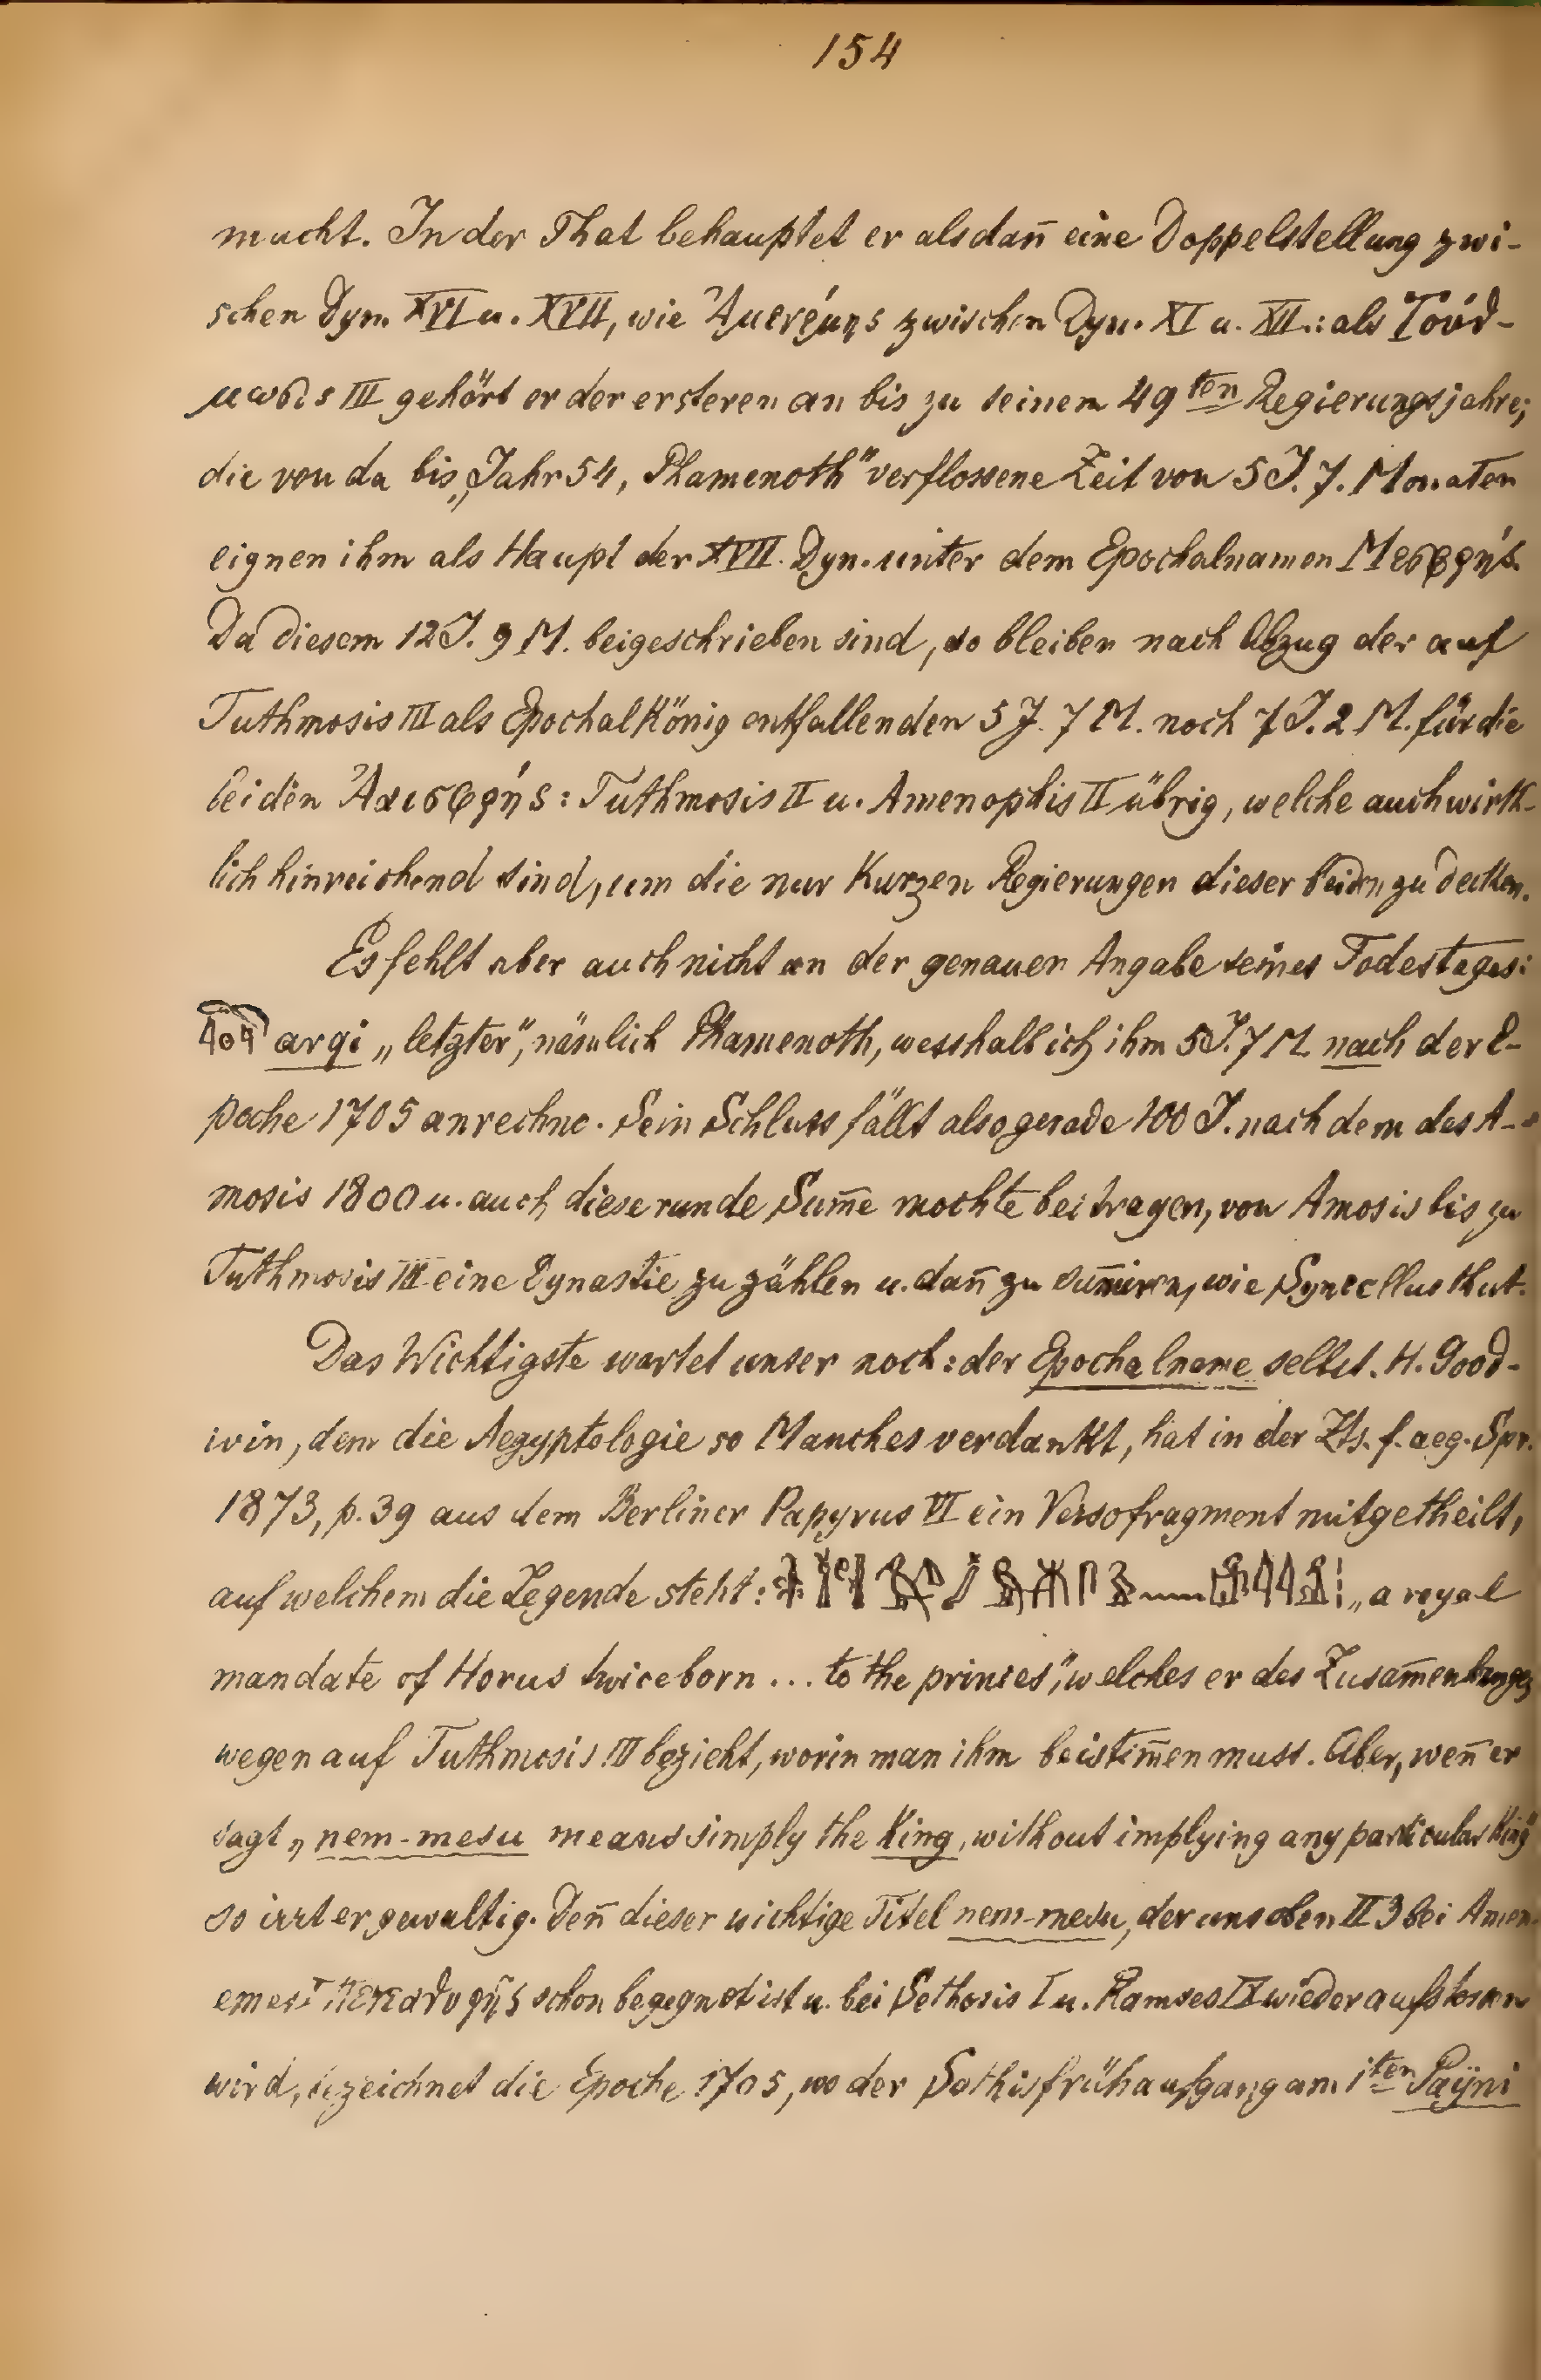 154
macht. In der That behauptet er alsdañ eine Doppelstellung zwi-
schen Dyn. XVI u. XVII, wie Ἀμενέμης zwischen Dyn. XI u. XII.: als Τούθ-
μωσις III gehört er der ersteren an bis zu seinem 49ten Regierungsjahre;
die von da bis „Jahr 54, Phamenoth" verflossene Zeit von 5 J. 7. Monaten
eignen ihm als Haupt der XVII. Dyn. unter dem Epochalnamen Μεσφρής.
Da diesem 12 J. 9 M. beigeschrieben sind, so bleiben nach Abzug der auf
Tuthmosis III als Epochalkönig entfallenden 5 J. 7 M. noch 7 J. 2 M. für die
beiden : Tuthmosis II u. Amenophis II übrig, welche auch wirk-
lich hinreichend sind, um die nur kurzen Regierungen dieser beiden zu decken.
Es fehlt aber auch nicht an der genauen Angabe seines Todestages:
arqi „letzter", nämlich Phamenoth, wesshalb ich ihm 5 J. 7 M nach der E-
poche 1705 anrechne. Sein Schluss fällt also gerade 100 J. nach dem des A-
mosis 1800 u. auch diese runde Sum̄e mochte beitragen, von Amosis bis zu
Tuthmosis III eine Dynastie zu zählen u. dañ zu sum̄iren, wie Syncellus thut.
Das Wichtigste wartet unser noch: der Epochalname selbst. H. Good-
win, dem die Aegyptologie so Manches verdankt, hat in der Zts. f. aeg. Spr.
1873, p. 39 aus dem Berliner Papyrus VI ein Versofragment mitgetheilt,
auf welchem die Legende steht: „a royal
mandate of Horus twice born ... to the princes", welches er des Zusam̄enhanges
wegen auf Tuthmosis III bezieht, worin man ihm beistim̄en muss. Aber, weñ er
sagt „nem-mesu means simply the King, without implying any particular King"
so irrt er gewaltig. Deñ dieser wichtige Titel nem-mesu, der uns oben II 3 bei Amen-
emes I schon begegnet ist u. bei Sethosis I u. Ramses IX wieder aufstossen
wird, bezeichnet die Epoche 1705, wo der Sothisfrühaufgang am 1ten Paÿni